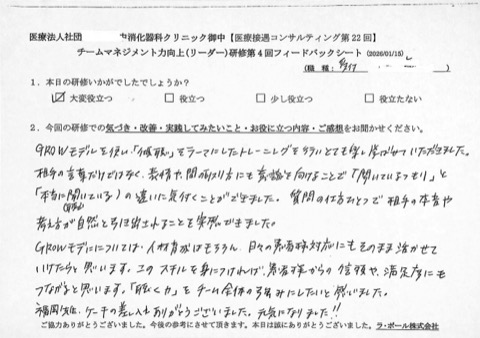 医療法人社団 中消化器科クリニック御中【医療接遇コンサルティング第22回】
チームマネジメント力向上(リーダー)研修第4回フィードバックシート (2026/01/15)
(職種: )
1. 本日の研修いかがでしたでしょうか?
☑大変役立つ □役立つ □少し役立つ □役立たない
2. 今回の研修での気づき・改善・実践してみたいこと・お役に立つ内容・ご感想をお聞かせください。
GROWモデルを使い、「傾聴」をテーマにしたトレーニングを行いとても楽しく学ばせていただきました。
相手の言葉だけではなく、表情や間の取り方にも意識を向けることで「聞いているつもり」と
「本当に聞いている」の違いに気付くことができました。質問の仕方ひとつで相手の本音や
考えが自然と引き出されることを実感できました。
GROWモデルについては、人材育成はもちろん、日々の患者様対応にもそのまま活かせて
いけたらと思います。このスキルを身につければ、患者様からの信頼や、満足度にも
つながると思います。「聴く力」をチーム全体の強みにしたいと感じました。
福岡先生、ケーキの差し入れありがとうございました。元気になりました!!
ご協力ありがとうございました。今後の参考にさせて頂きます。本日は誠にありがとうございました。ラ・ポール株式会社